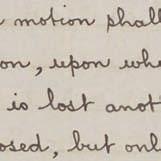 motion shall
on, upon whe
is lost anot
osed, but onl